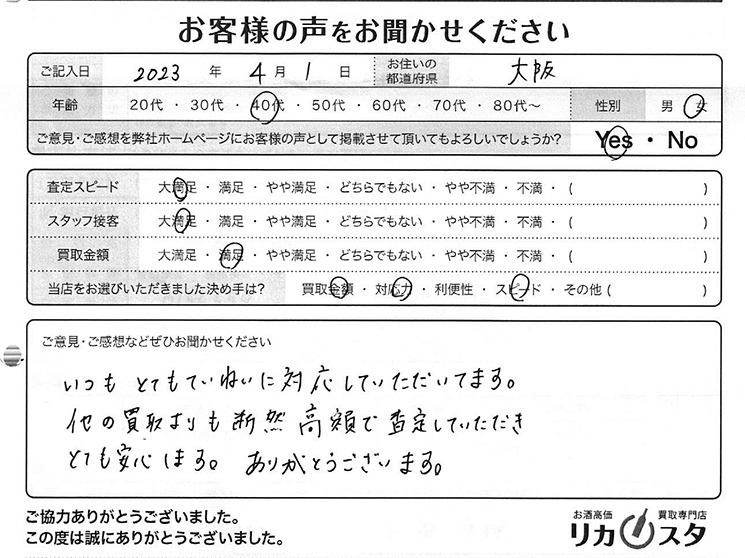 お客様の声をお聞かせください
ご記入日 2023 年 4 月 1 日 お住いの都道府県 大阪
年齢 20代 ・ 30代 ・ 40代 ・ 50代 ・ 60代 ・ 70代 ・ 80代〜 性別 男 女
ご意見・ご感想を弊社ホームページにお客様の声として掲載させて頂いてもよろしいでしょうか? Yes ・ No
査定スピード 大満足 ・ 満足 ・ やや満足 ・ どちらでもない ・ やや不満 ・ 不満 ・ ( )
スタッフ接客 大満足 ・ 満足 ・ やや満足 ・ どちらでもない ・ やや不満 ・ 不満 ・ ( )
買取金額 大満足 ・ 満足 ・ やや満足 ・ どちらでもない ・ やや不満 ・ 不満 ・ ( )
当店をお選びいただきました決め手は? 買取金額 ・ 対応力 ・ 利便性 ・ スピード ・ その他 ( )
ご意見・ご感想などぜひお聞かせください
いつも とてもていねいに対応していただいてます。
他の買取よりも断然 高額で査定していただき
とても安心します。 ありがとうございます。
ご協力ありがとうございました。
この度は誠にありがとうございました。
お酒高価 買取専門店
リカスタ